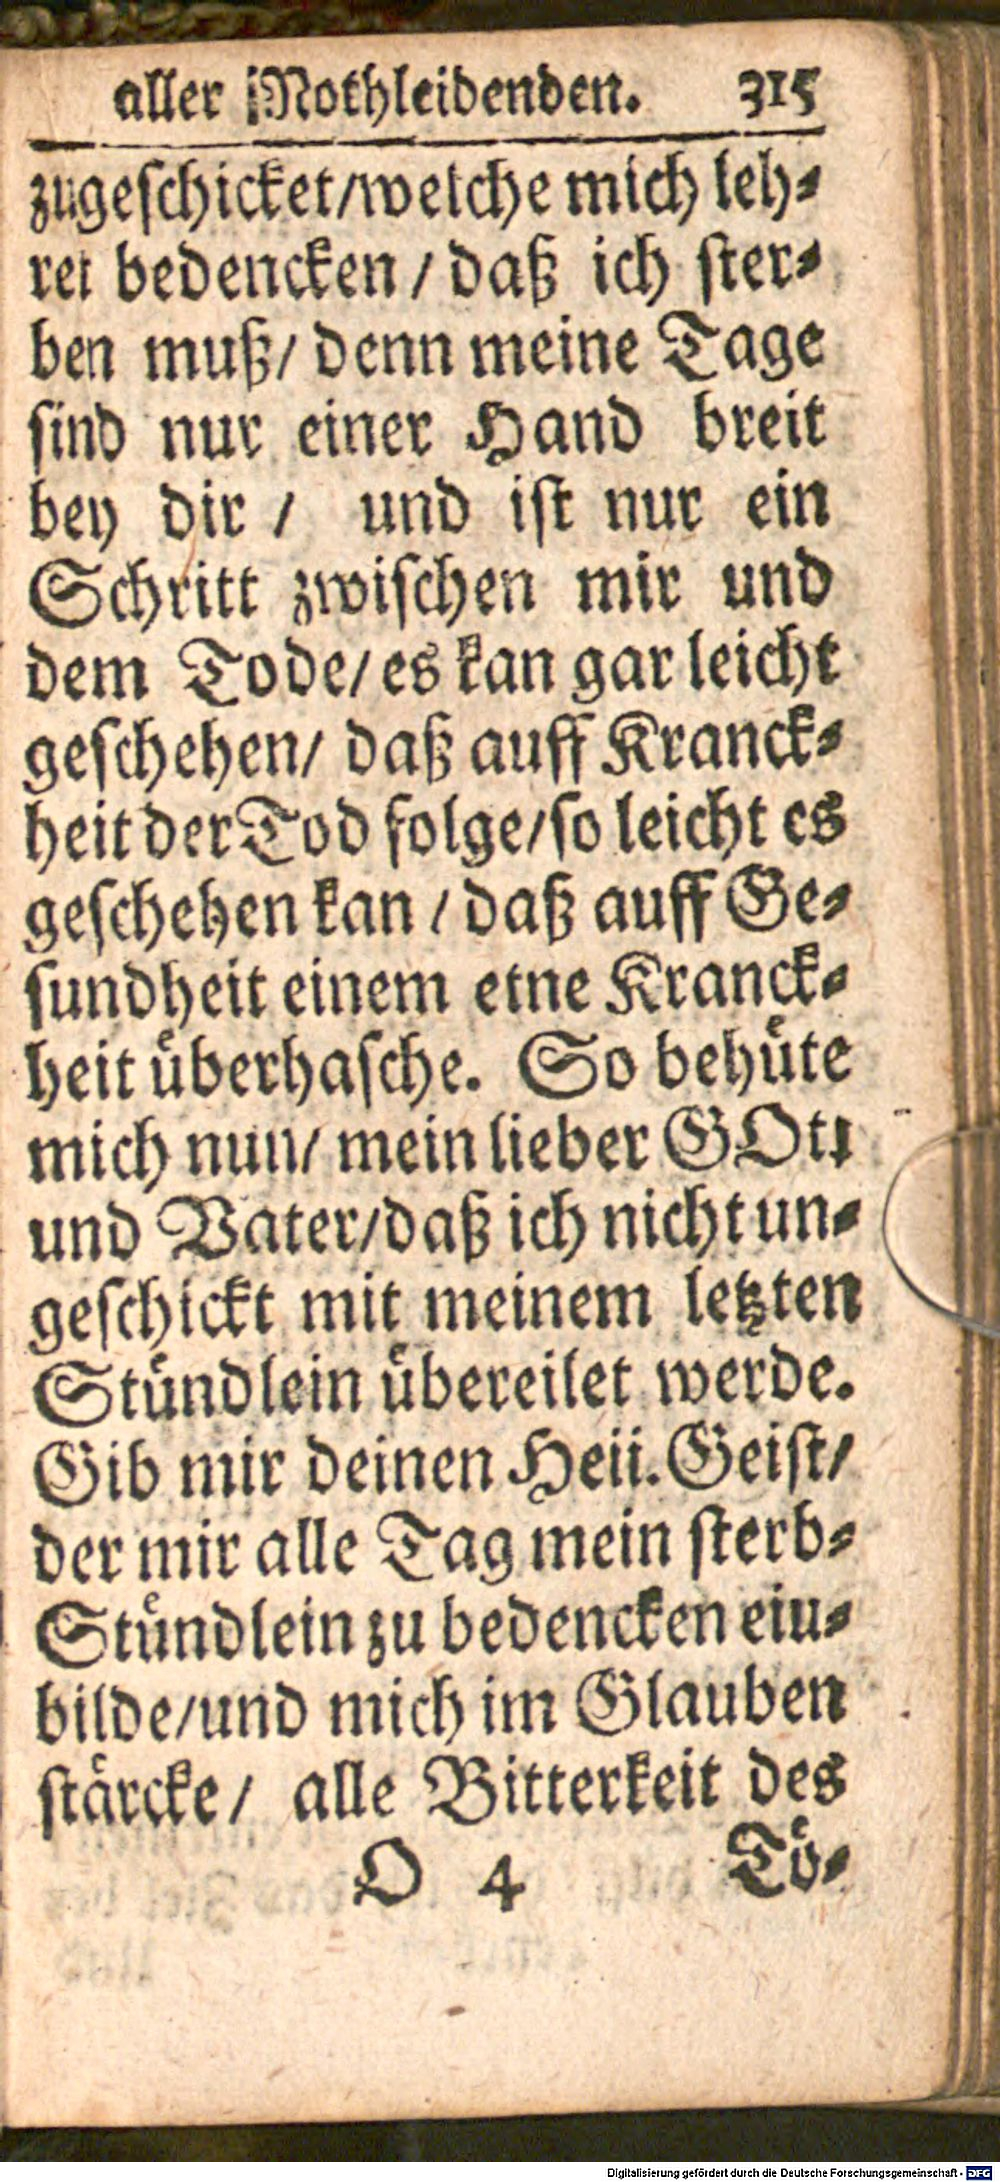 aller Nothleidenden. 315
zugeschicket/welche mich leh-
ret bedencken / daß ich ster-
ben muß/ denn meine Tage
sind nur einer Hand breit
bey dir / und ist nur ein
Schritt zwischen mir und
dem Tode/ es kan gar leicht
geschehen/ daß auff Kranck-
heit der Tod folge/so leicht es
geschehen kan / daß auff Ge-
sundheit einem etne Kranck-
heit überhasche. So behüte
mich nun/ mein lieber GOtt
und Vater/daß ich nicht un-
geschickt mit meinem letzten
Stündlein übereilet werde.
Gib mir deinen Heii. Geist/
der mir alle Tag mein sterb-
Stündlein zu bedencken eiu-
bilde/und mich im Glauben
stärcke/ alle Bitterkeit des
O 4 Tö-
Digitalisierung gefördert durch die Deutsche Forschungsgemeinschaft - DFG